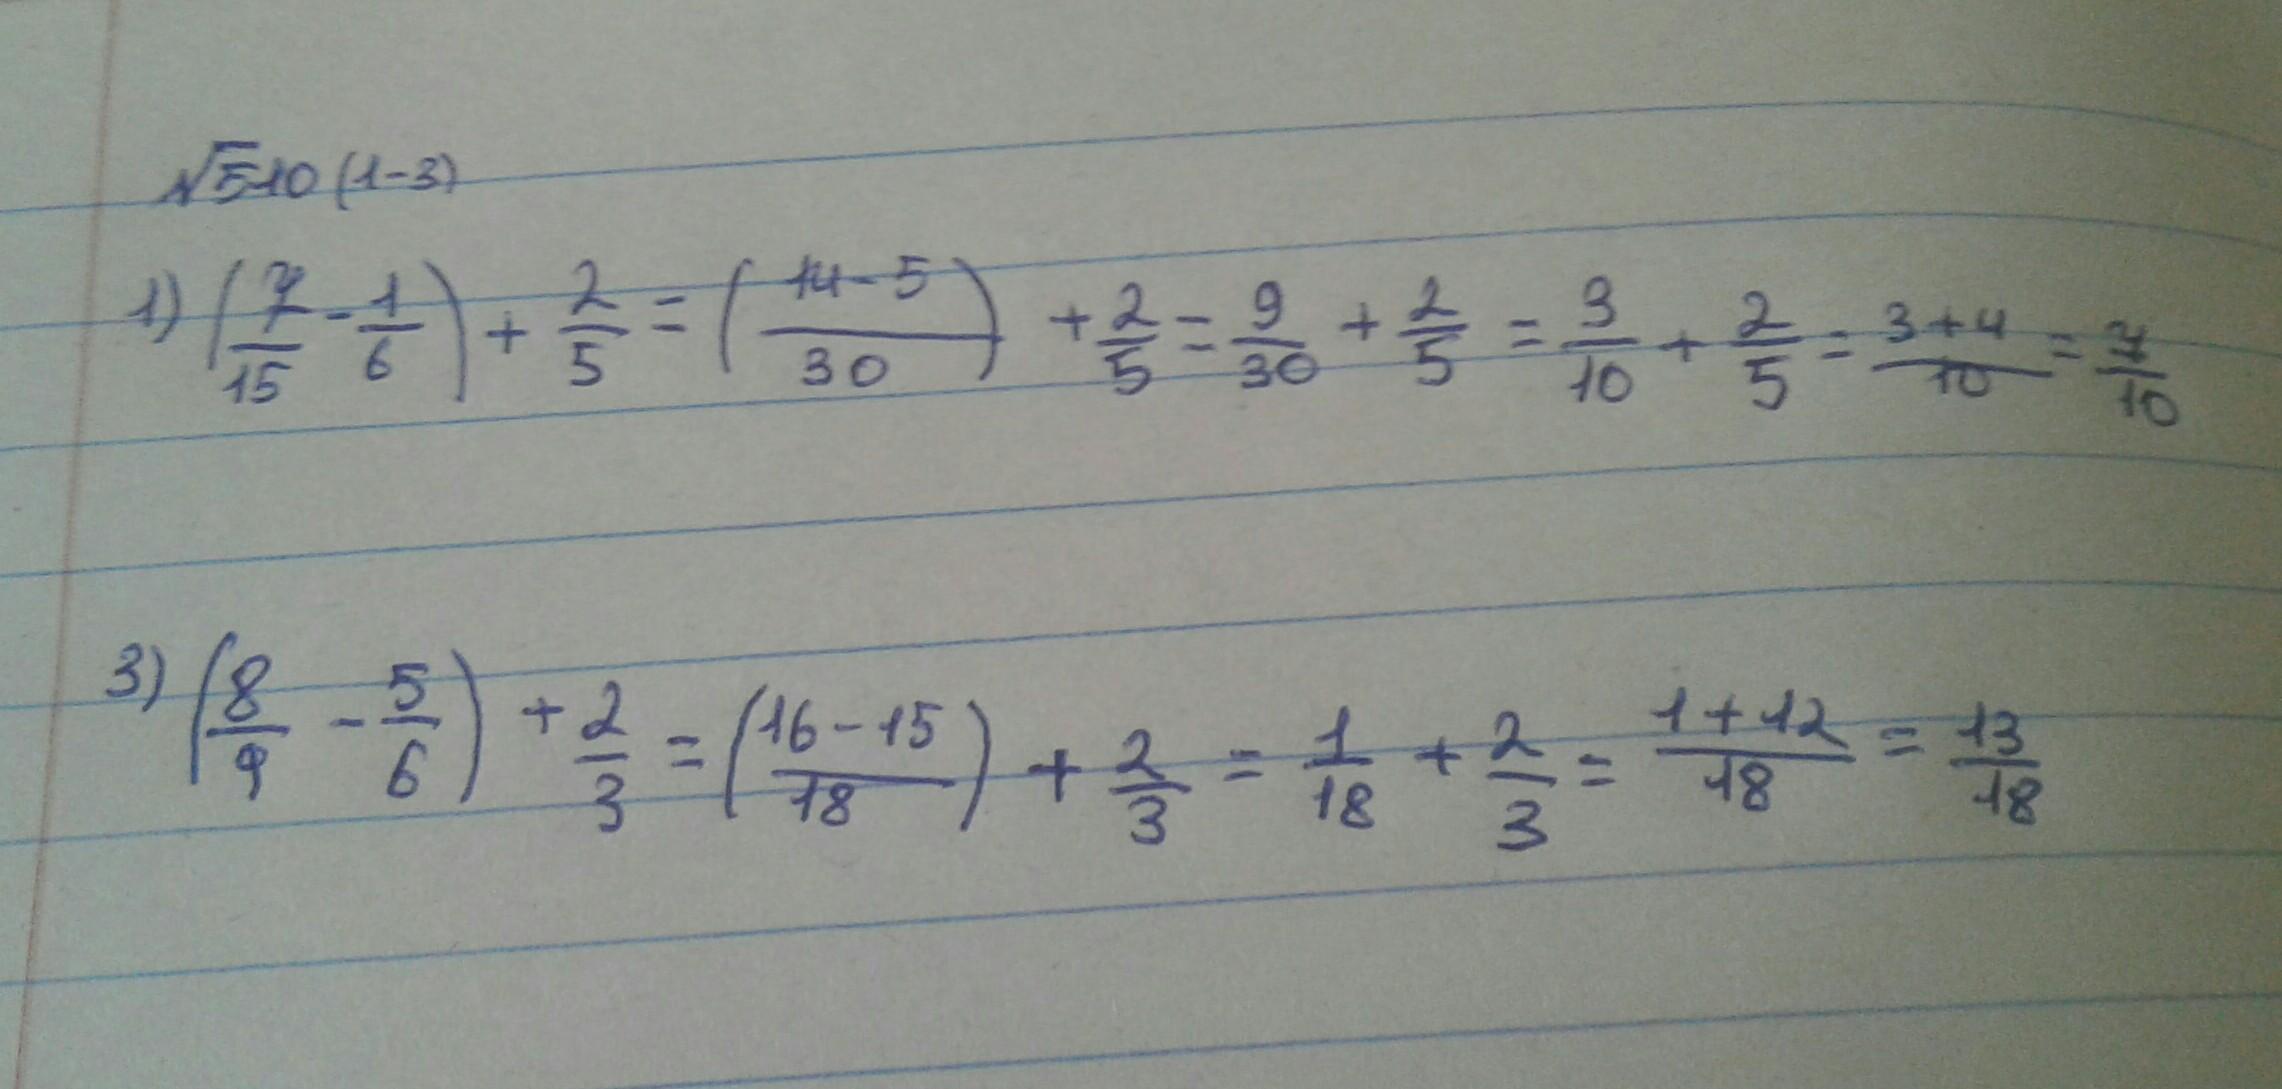 №510 (1-3)
1) (7/15 - 1/6) + 2/5 = (14-5/30) + 2/5 = 9/30 + 2/5 = 3/10 + 2/5 = 3+4/10 = 7/10
3) (8/9 - 5/6) + 2/3 = (16-15/18) + 2/3 = 1/18 + 2/3 = 1+12/18 = 13/18